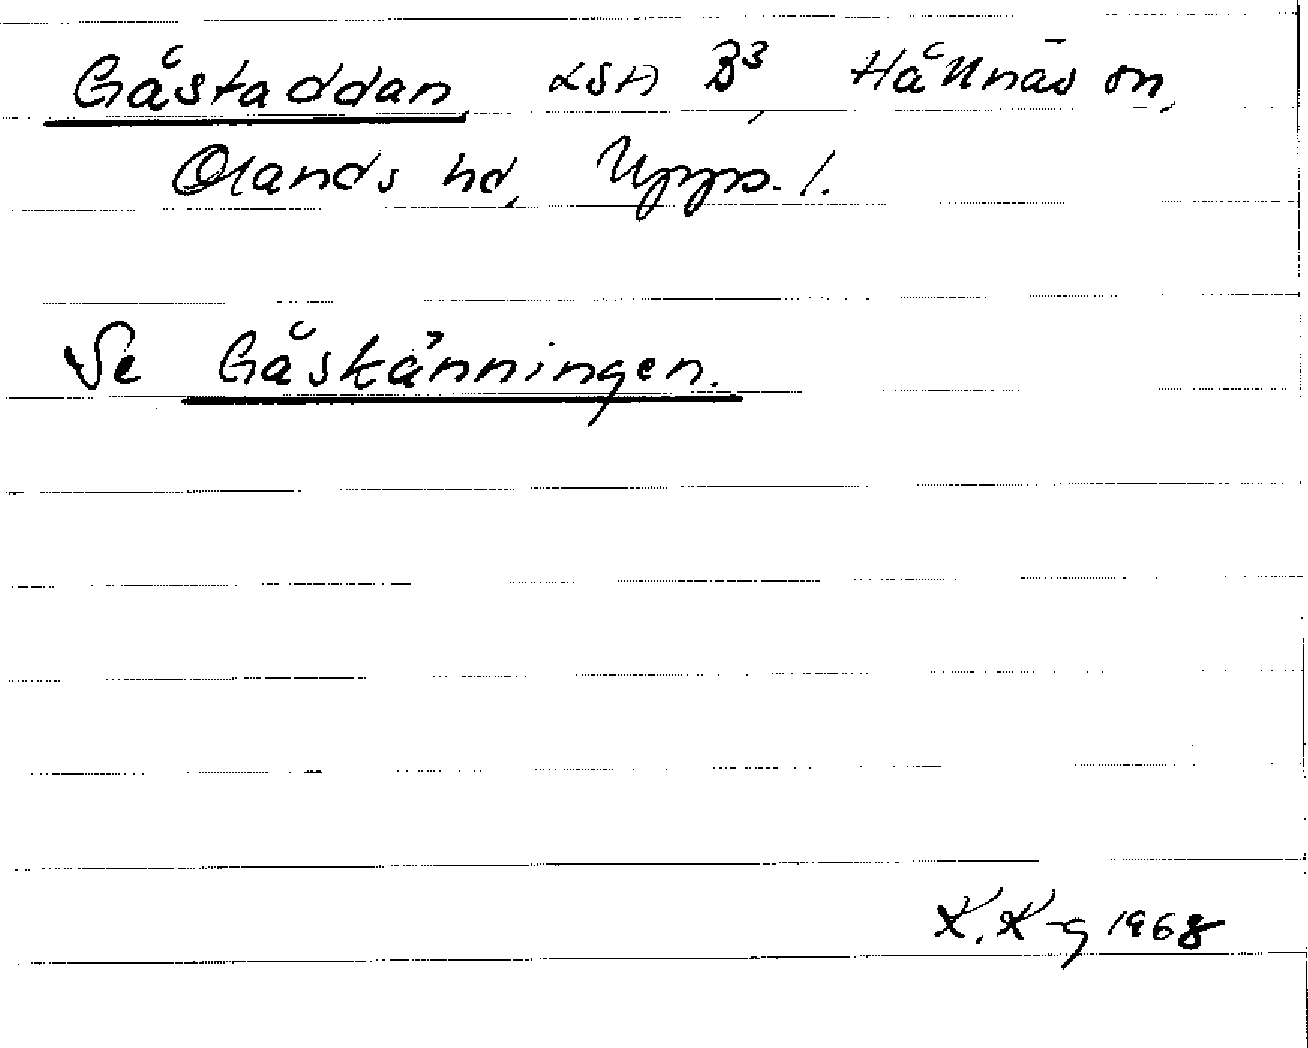 Gåstaddan, LSA B³, Hållnäs sn,
Olands hd, Upps. l.
Se Gåskänningen.
K. K-g 1968